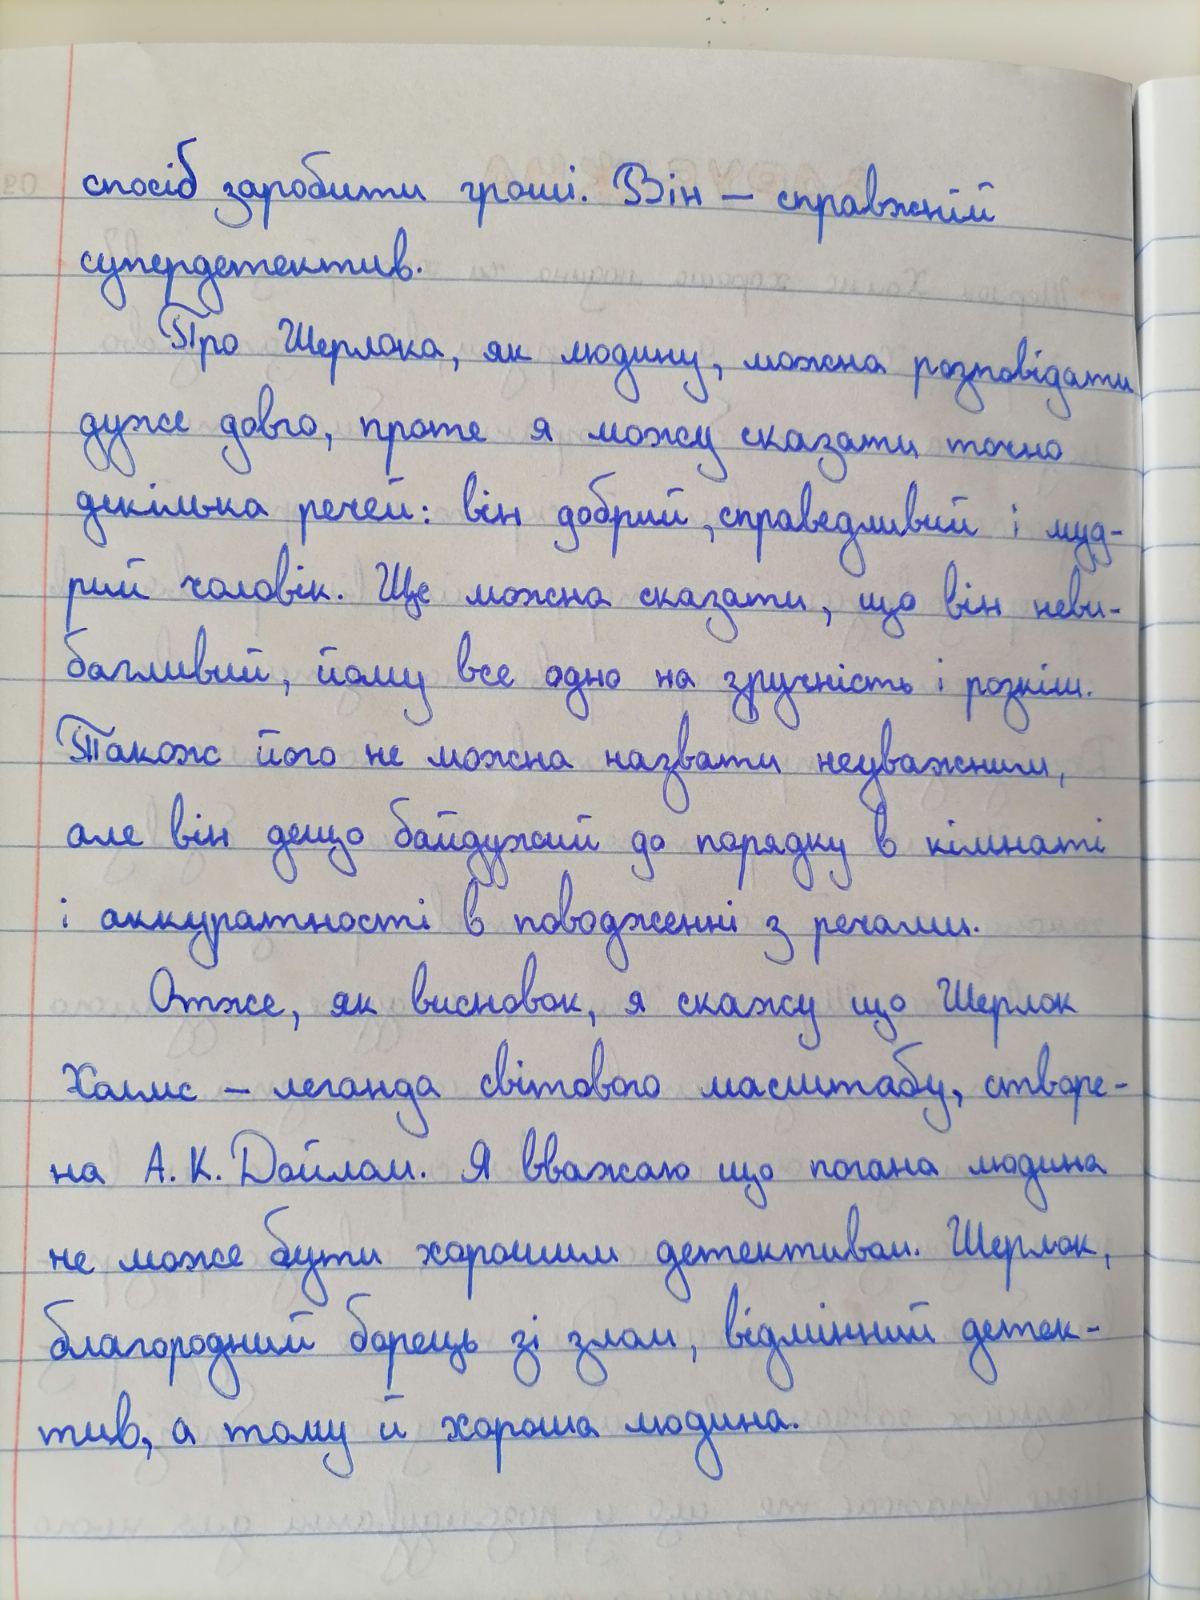 спосіб заробити гроші. Він – справжній
супердетектив.
Про Шерлока, як людину, можна розповідати
дуже довго, проте я можу сказати точно
декілька речей: він добрий, справедливий і муд-
рий чоловік. Ще можна сказати, що він неви-
багливий, йому все одно на зручність і розкіш.
Також його не можна назвати неуважним,
але він дещо байдужий до порядку в кімнаті
і аккуратності в поводженні з речами.
Отже, як висновок, я скажу що Шерлок
Холмс – леганда світового масштабу, створе-
на А. К. Дойлом. Я вважаю що погана людина
не може бути хорошим детективом. Шерлок,
благородний борець зі злом, відмінний детек-
тив, а тому й хороша людина.